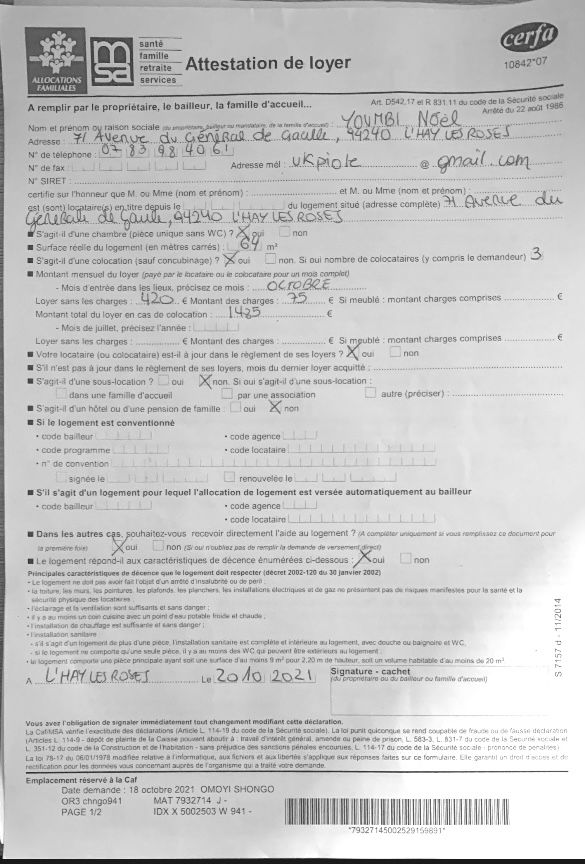 ALLOCATIONS FAMILIALES
msa
santé
famille
retraite
services
Attestation de loyer
cerfa
10842*07
A remplir par le propriétaire, le bailleur, la famille d'accueil...
Art. D542.17 et R 831.11 du code de la Sécurité sociale
Arrêté du 22 août 1986
Nom et prénom ou raison sociale (du propriétaire, bailleur ou mandataire, de la famille d'accueil) : YOUMBI Noël
Adresse : 71 Avenue du Général de Gaulle, 94240 L'HAY LES ROSES
N° de téléphone : 07 83 98 40 61
N° de fax : Adresse mél : ukpiole @ gmail.com
N° SIRET :
certifie sur l'honneur que M. ou Mme (nom et prénom) : et M. ou Mme (nom et prénom) :
est (sont) locataire(s) en titre depuis le du logement situé (adresse complète) 71 Avenue du
Générale de Gaule, 94240 L'HAY LES ROSES
■ S'agit-il d'une chambre (pièce unique sans WC) ? X oui non
■ Surface réelle du logement (en mètres carrés) : 64 m²
■ S'agit-il d'une colocation (sauf concubinage) ? X oui non. Si oui nombre de colocataires (y compris le demandeur) 3
■ Montant mensuel du loyer (payé par le locataire ou le colocataire pour un mois complet)
- Mois d'entrée dans les lieux, précisez ce mois : OCTOBRE
Loyer sans les charges : 420 € Montant des charges : 75 € Si meublé : montant charges comprises €
Montant total du loyer en cas de colocation : 1485 €
- Mois de juillet, précisez l'année :
Loyer sans les charges : € Montant des charges : € Si meublé : montant charges comprises €
■ Votre locataire (ou colocataire) est-il à jour dans le règlement de ses loyers ? X oui non
■ S'il n'est pas à jour dans le règlement de ses loyers, mois du dernier loyer acquitté :
■ S'agit-il d'une sous-location ? oui X non. Si oui s'agit-il d'une sous-location :
dans une famille d'accueil par une association autre (préciser) :
■ S'agit-il d'un hôtel ou d'une pension de famille : oui X non
■ Si le logement est conventionné
• code bailleur • code agence
• code programme • code locataire
• n° de convention
signée le renouvelée le
■ S'il s'agit d'un logement pour lequel l'allocation de logement est versée automatiquement au bailleur
• code bailleur • code agence
• code locataire
■ Dans les autres cas, souhaitez-vous recevoir directement l'aide au logement ? (A compléter uniquement si vous remplissez ce document pour
la première fois) X oui non (Si oui n'oubliez pas de remplir la demande de versement direct)
■ Le logement répond-il aux caractéristiques de décence énumérées ci-dessous : X oui non
Principales caractéristiques de décence que le logement doit respecter (décret 2002-120 du 30 janvier 2002)
• Le logement ne doit pas avoir fait l'objet d'un arrêté d'insalubrité ou de péril ;
• la toiture, les murs, les peintures, les plafonds, les planchers, les installations électriques et de gaz ne présentent pas de risques manifestes pour la santé et la
sécurité physique des locataires ;
• l'éclairage et la ventilation sont suffisants et sans danger ;
• il y a au moins un coin cuisine avec un point d'eau potable froide et chaude ;
• l'installation de chauffage est suffisante et sans danger ;
• l'installation sanitaire
- s'il s'agit d'un logement de plus d'une pièce, l'installation sanitaire est complète et intérieure au logement, avec douche ou baignoire et WC,
- si le logement ne comporte qu'une seule pièce, il y a au moins des WC qui peuvent être extérieurs au logement ;
• le logement comporte une pièce principale ayant soit une surface d'au moins 9 m² pour 2,20 m de hauteur, soit un volume habitable d'au moins de 20 m³.
S 7157 d - 11/2014
A L'HAY LES ROSES Le 20 10 2021
Signature - cachet
(du propriétaire ou du bailleur ou famille d'accueil)
Vous avez l'obligation de signaler immédiatement tout changement modifiant cette déclaration.
La Caf/MSA vérifie l'exactitude des déclarations (Article L. 114-19 du code de la Sécurité sociale). La loi punit quiconque se rend coupable de fraude ou de fausse déclaration
(Articles L. 114-9 - dépôt de plainte de la Caisse pouvant aboutir à : travail d'intérêt général, amende ou peine de prison, L. 583-3, L. 831-7 du code de la Sécurité sociale et
L. 351-12 du code de la Construction et de l'Habitation - sans préjudice des sanctions pénales encourues, L. 114-17 du code de la Sécurité sociale - prononcé de pénalités)
La loi 78-17 du 06/01/1978 modifiée relative à l'informatique, aux fichiers et aux libertés s'applique aux réponses faites sur ce formulaire. Elle garantit un droit d'accès et de
rectification pour les données vous concernant auprès de l'organisme qui a traité votre demande.
Emplacement réservé à la Caf
Date demande : 18 octobre 2021 OMOYI SHONGO
OR3 chngo941 MAT 7932714 J -
PAGE 1/2 IDX X 5002503 W 941 -
*79327145002529159891*